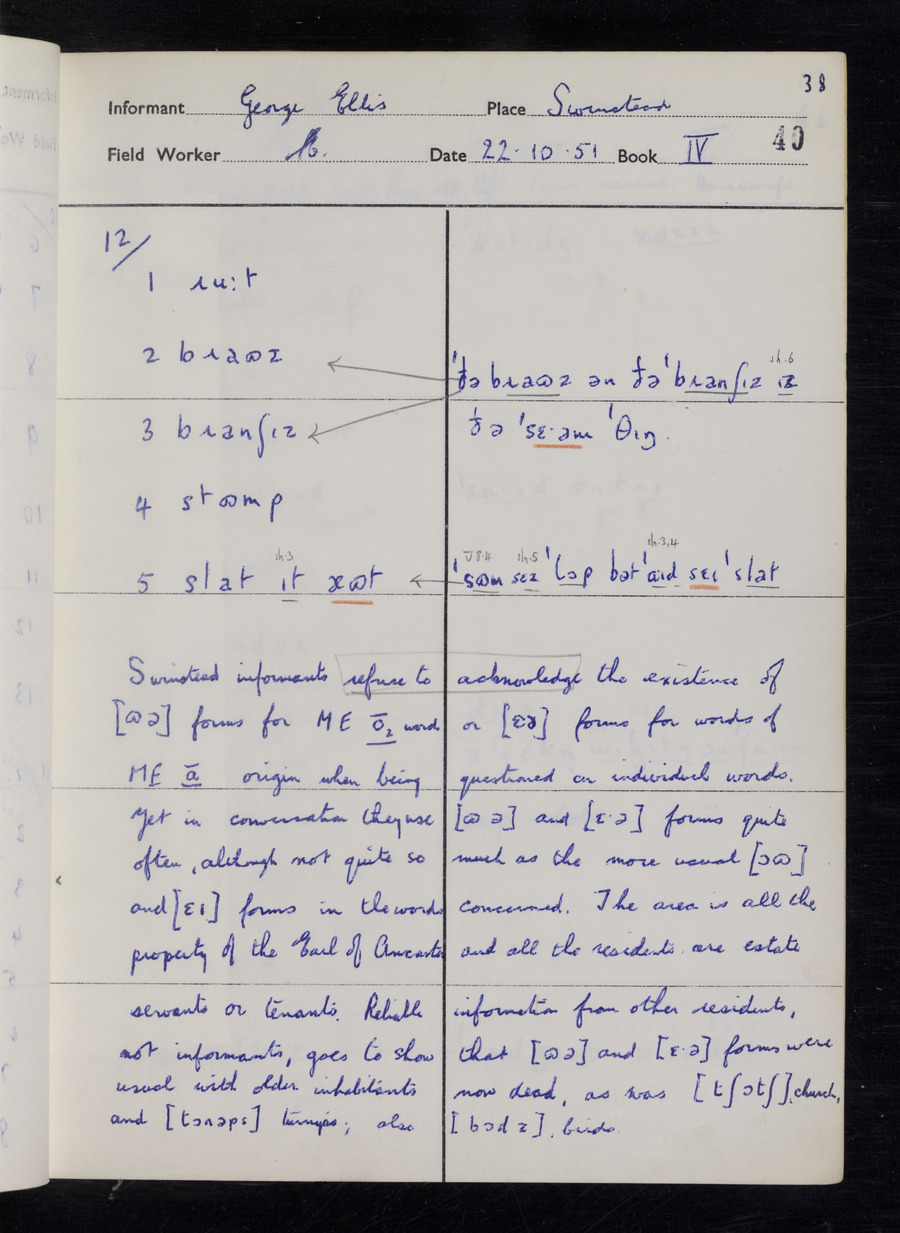 38
Informant George Ellis Place Swinstead
Field Worker Date 22.10.51 Book IV 40
12/
1 ɹu:t
2 bɹaɷz
'ðə bɹaɷz ən ðə 'bɹanʃɪz ɪz
sh.6
3 bɹanʃɪz
'ðə 'sɛ·əm 'θɪŋ.
4 stɷmp
5 slat ɪt ɷt
sh.3
'sɷm sɛz 'lɔp bət 'aɪd sɛɪ 'slat
V.8.4 sh.5 sh.3,4
Swinstead informants refuse to acknowledge the existence of
[ɷə] forms for ME ō₂ word or [ɛə] forms for words of
ME ā origin when being questioned on individual words.
Yet in conversation they use [ɷə] and [ɛ·ə] forms quite
often, although not quite so much as the more usual [ɔɷ]
and [ɛɪ] forms in the words concerned. The area is all the
property of the Earl of Ancaster and all the residents are estate
servants or tenants. Reliable information from other residents,
not informants, goes to show that [ɷə] and [ɛ·ə] forms were
usual with older inhabitants now dead, as was [tʃɔtʃ], church,
and [tɔnəps] turnips; also [bɔdz], birds